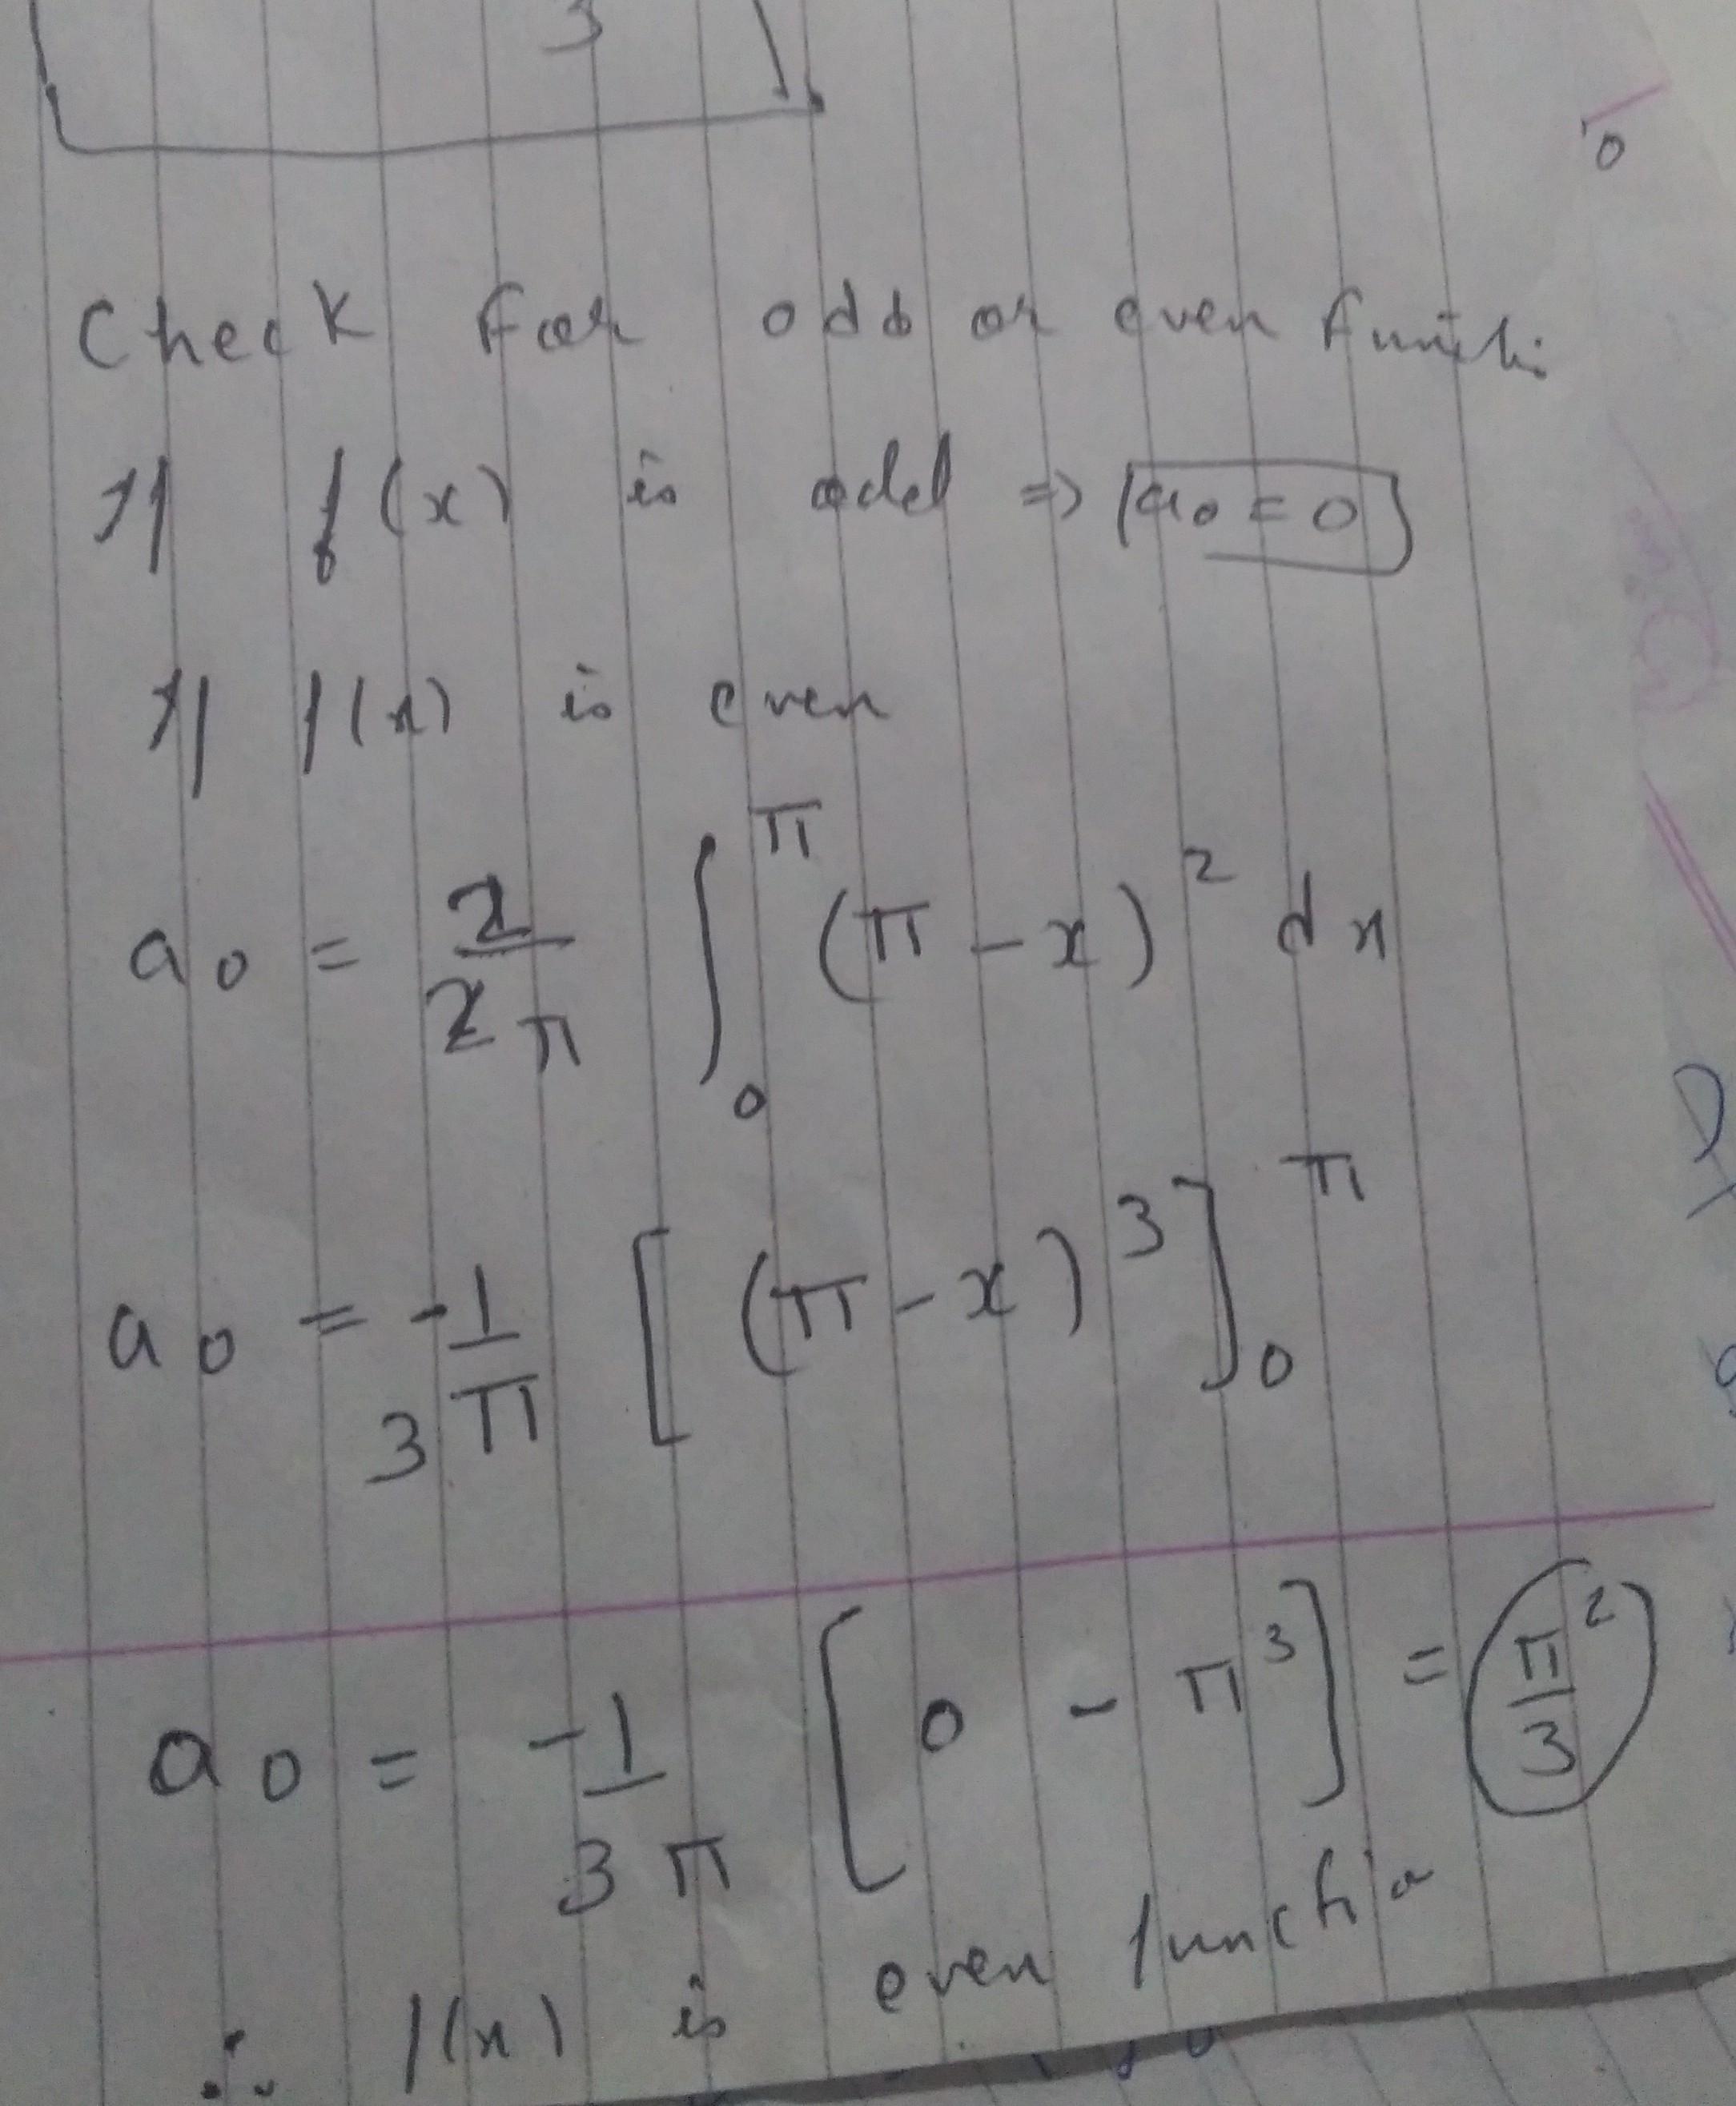 3
Check for odd or even functi:
If f(x) is odd => a₀ = 0
If f(x) is even
a₀ = 2/2π ∫₀^π (π - x)² dx
a₀ = -1/3π [(π - x)³]₀^π
a₀ = -1/3π [0 - π³] = π²/3
∴ f(x) is even functio